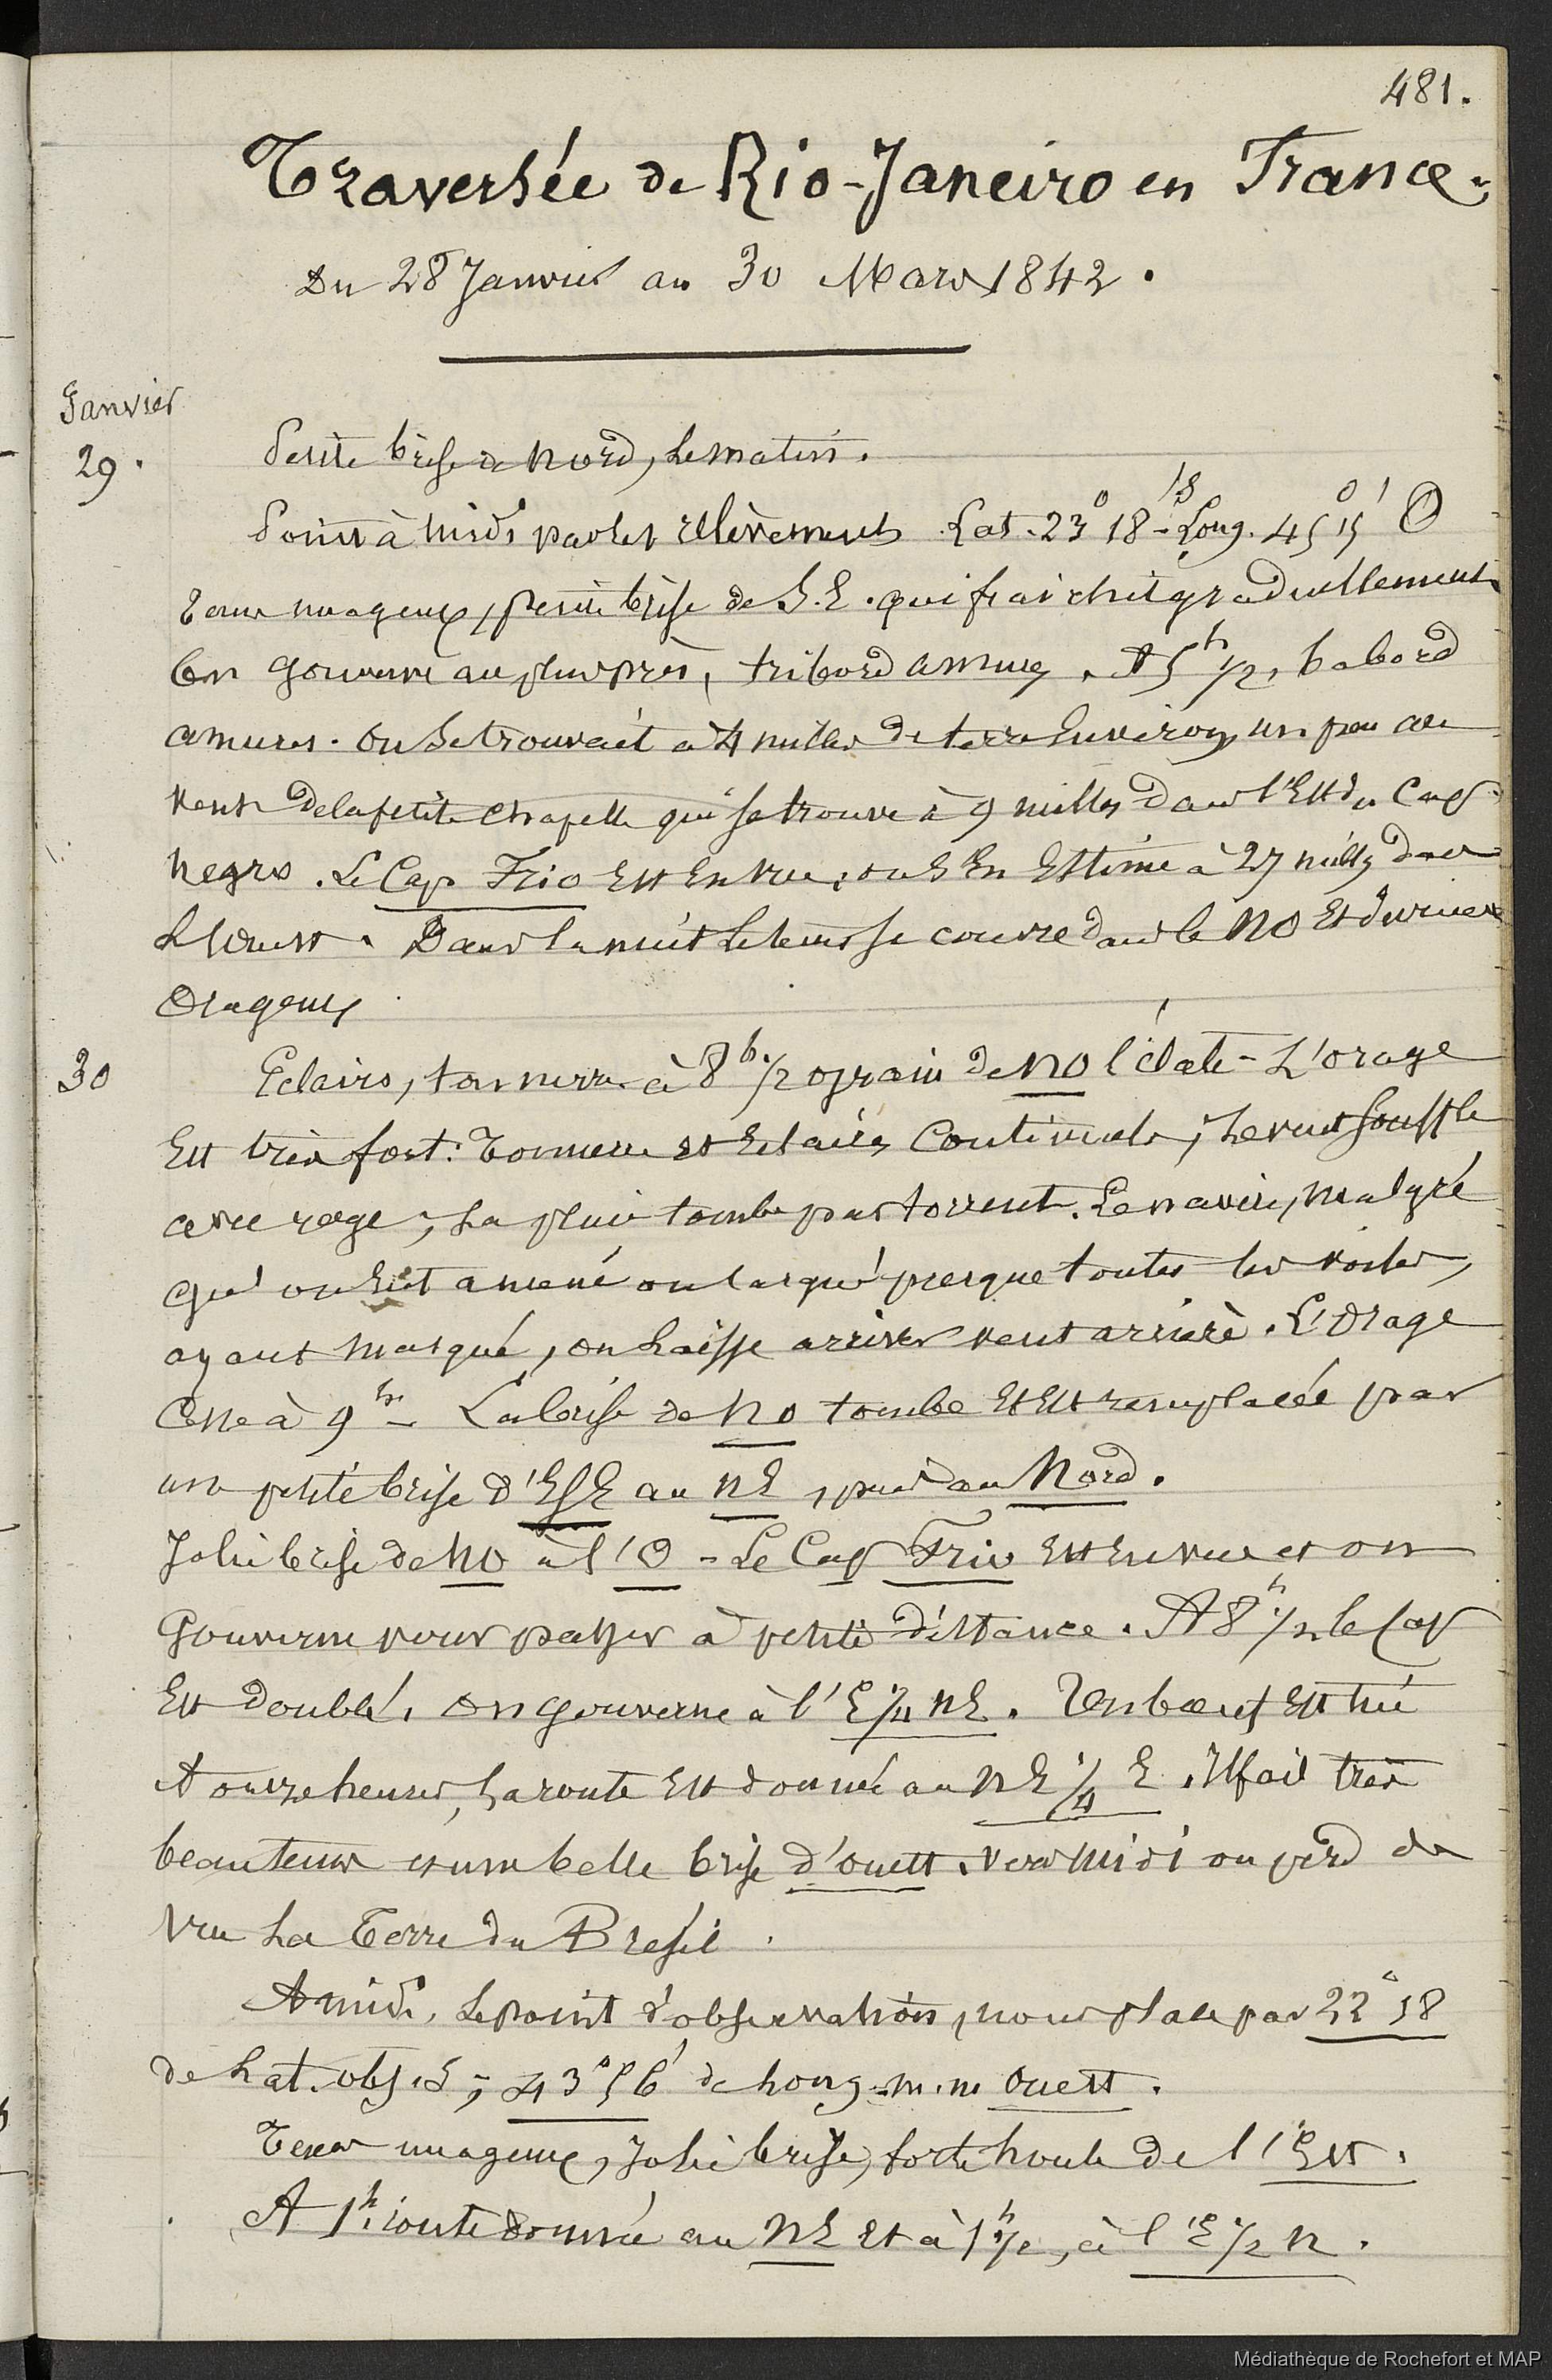 481.
Traversée de Rio-Janeiro en France.
Du 28 Janvier au 30 Mars 1842.
Janvier
29. Petite brise de Nord, le matin.
Point à midi par les relèvements Lat. 23° 18' S - Long. 45° 15' O
Tems nuageux, petite brise de S.E. qui fraichit graduellement
On gouverne au plus près, tribord amures. A 5h 1/2, babord
amures. On se trouvait à 4 milles de terre environ, un peu au
vent de la petite chapelle qui se trouve à 9 milles dans l'Est du Cap
Negro. Le Cap Frio est en vue, on s'en estime à 27 milles dans
L'Ouest. Dans la nuit le tems se couvre dans le NO et devient
Orageux.
30 Eclairs, tonnerre à 8h 1/2 grain de NO éclate - L'orage
Est très fort: Tonnerre et Eclairs Continuels, Le vent souffle
avec rage, La pluie tombe par torrent. Le navire, malgré
qu'on eut amené ou largué presque toutes les voiles,
ayant masqué, on laisse arriver vent arrière. L'Orage
Cesse à 9h - La brise de NO tombe Et Est remplacée par
une petite brise d'ESE au NE, puis au Nord.
Jolie brise de NO à l'O - Le Cap Frio Est En vue et on
Gouverne pour passer à petite distance. A 8h 1/2 le Cap
Est doublé. On gouverne à l'E 1/4 NE. Un boeuf Est tué
A onze heures, La route Est donnée au NE 1/4 E. Il fait très
beau tems et une belle brise d'ouest. Vers Midi on perd de
Vue La Terre du Brésil.
A midi, Le point d'observation, nous place par 22° 58
de Lat. obs. S; 43° 56' de Long. m. ne Ouest.
Tems nuageux, Jolie brise, forte houle de l'Est.
A 1h route donnée au NE et à 1h 1/2, à l'E 1/2 N.
Médiathèque de Rochefort et MAP